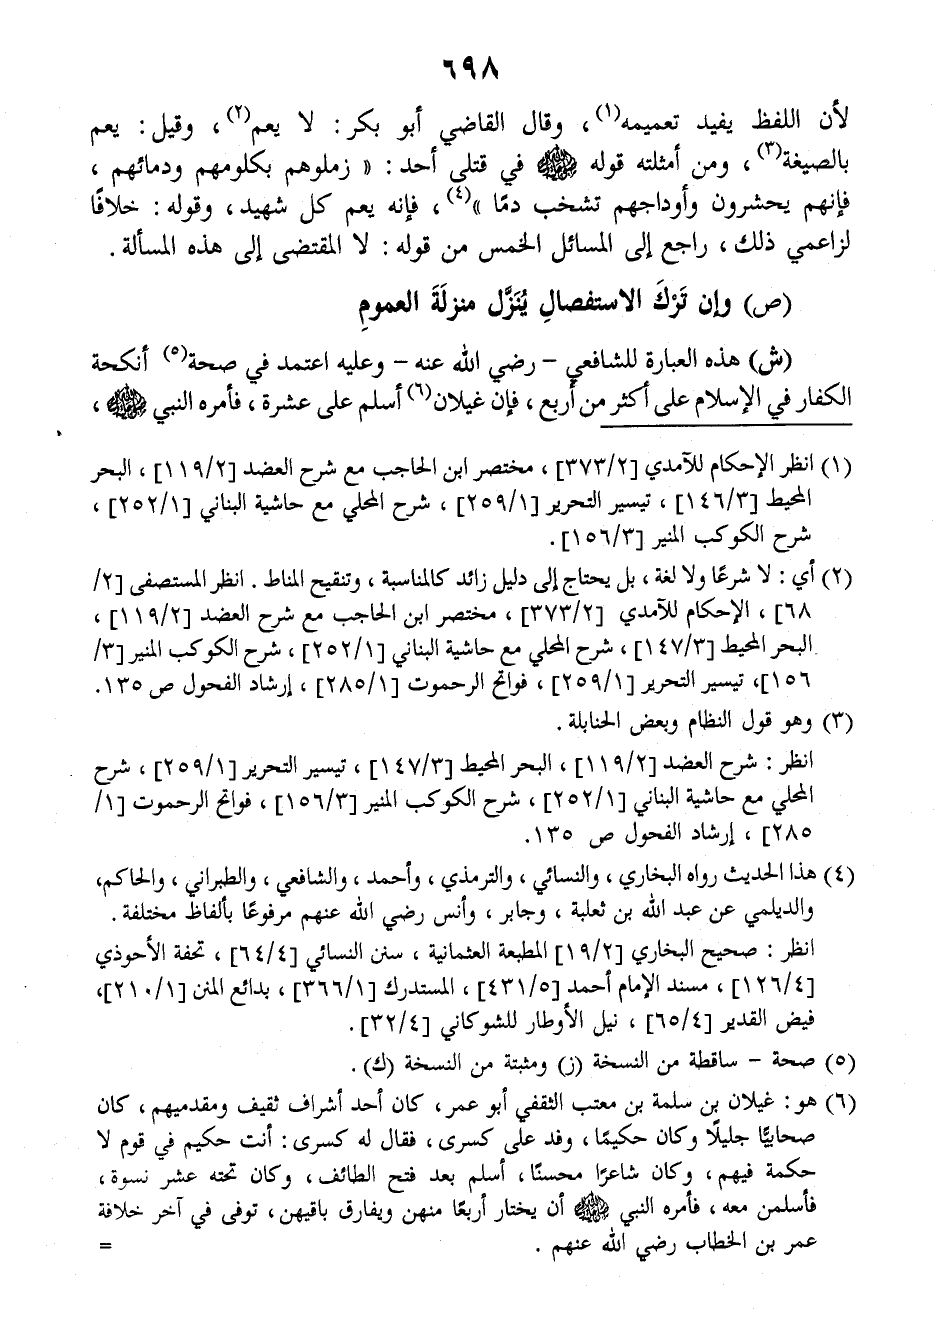 ٦٩٨
لأن اللفظ يفيد تعميمه(١) ، وقال القاضي أبو بكر : لا يعم(٢) ، وقيل : يعم
بالصيغة(٣) ، ومن أمثلته قوله ﷺ في قتلى أحد : « زملوهم بكلومهم ودمائهم ،
فإنهم يحشرون وأوداجهم تشخب دمًا »(٤) ، فإنه يعم كل شهيد ، وقوله : خلافًا
لزاعمي ذلك ، راجع إلى المسائل الخمس من قوله : لا المقتضى إلى هذه المسألة .
(ص) وإن تَرْكَ الاستفصالِ يُنَزَّل منزلَةَ العمومِ
(ش) هذه العبارة للشافعي - رضي الله عنه - وعليه اعتمد في صحة(٥) أنكحة
الكفار في الإسلام على أكثر من أربع ، فإن غيلان(٦) أسلم على عشرة ، فأمره النبي ﷺ ،
(١) انظر الإحكام للآمدي [٣٧٣/٢] ، مختصر ابن الحاجب مع شرح العضد [١١٩/٢] ، البحر
المحيط [١٤٦/٣] ، تيسير التحرير [٢٥٩/١] ، شرح المحلي مع حاشية البناني [٢٥٢/١] ،
شرح الكوكب المنير [١٥٦/٣] .
(٢) أي : لا شرعًا ولا لغة ، بل يحتاج إلى دليل زائد كالمناسبة ، وتنقيح المناط . انظر المستصفى [٢/
٦٨] ، الإحكام للآمدي [٣٧٣/٢] ، مختصر ابن الحاجب مع شرح العضد [١١٩/٢] ،
البحر المحيط [١٤٧/٣] ، شرح المحلي مع حاشية البناني [٢٥٢/١] ، شرح الكوكب المنير [٣/
١٥٦] ، تيسير التحرير [٢٥٩/١] ، فواتح الرحموت [٢٨٥/١] ، إرشاد الفحول ص ١٣٥ .
(٣) وهو قول النظام وبعض الحنابلة .
انظر : شرح العضد [١١٩/٢] ، البحر المحيط [١٤٧/٣] ، تيسير التحرير [٢٥٩/١] ، شرح
المحلي مع حاشية البناني [٢٥٢/١] ، شرح الكوكب المنير [١٥٦/٣] ، فواتح الرحموت [١/
٢٨٥] ، إرشاد الفحول ص ١٣٥ .
(٤) هذا الحديث رواه البخاري ، والنسائي ، والترمذي ، وأحمد ، والشافعي ، والطبراني ، والحاكم ،
والديلمي عن عبد الله بن ثعلبة ، وجابر ، وأنس رضي الله عنهم مرفوعًا بألفاظ مختلفة .
انظر : صحيح البخاري [١٩/٢] المطبعة العثمانية ، سنن النسائي [٦٤/٤] ، تحفة الأحوذي
[١٢٦/٤] ، مسند الإمام أحمد [٤٣١/٥] ، المستدرك [٣٦٦/١] ، بدائع المنن [٢١٠/١] ،
فيض القدير [٦٥/٤] ، نيل الأوطار للشوكاني [٣٢/٤] .
(٥) صحة - ساقطة من النسخة (ز) ومثبتة من النسخة (ك) .
(٦) هو : غيلان بن سلمة بن معتب الثقفي أبو عمر ، كان أحد أشراف ثقيف ومقدميهم ، كان
صحابيًا جليلًا وكان حكيمًا ، وفد على كسرى ، فقال له كسرى : أنت حكيم في قوم لا
حكمة فيهم ، وكان شاعرًا محسنًا ، أسلم بعد فتح الطائف ، وكان تحته عشر نسوة ،
فأسلمن معه ، فأمره النبي ﷺ أن يختار أربعًا منهن ويفارق باقيهن ، توفى في آخر خلافة
عمر بن الخطاب رضي الله عنهم . =